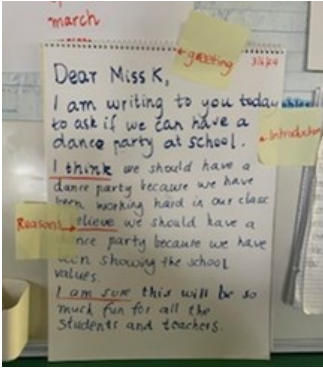 march
greeting
Dear Miss K,
I am writing to you today
to ask if we can have a
dance party at school.
Introduction
I think we should have a
dance party because we have
been working hard in our class
Reasons lieve we should have a
nce party because we have
een showing the school
values.
I am sure this will be so
much fun for all the
students and teachers.